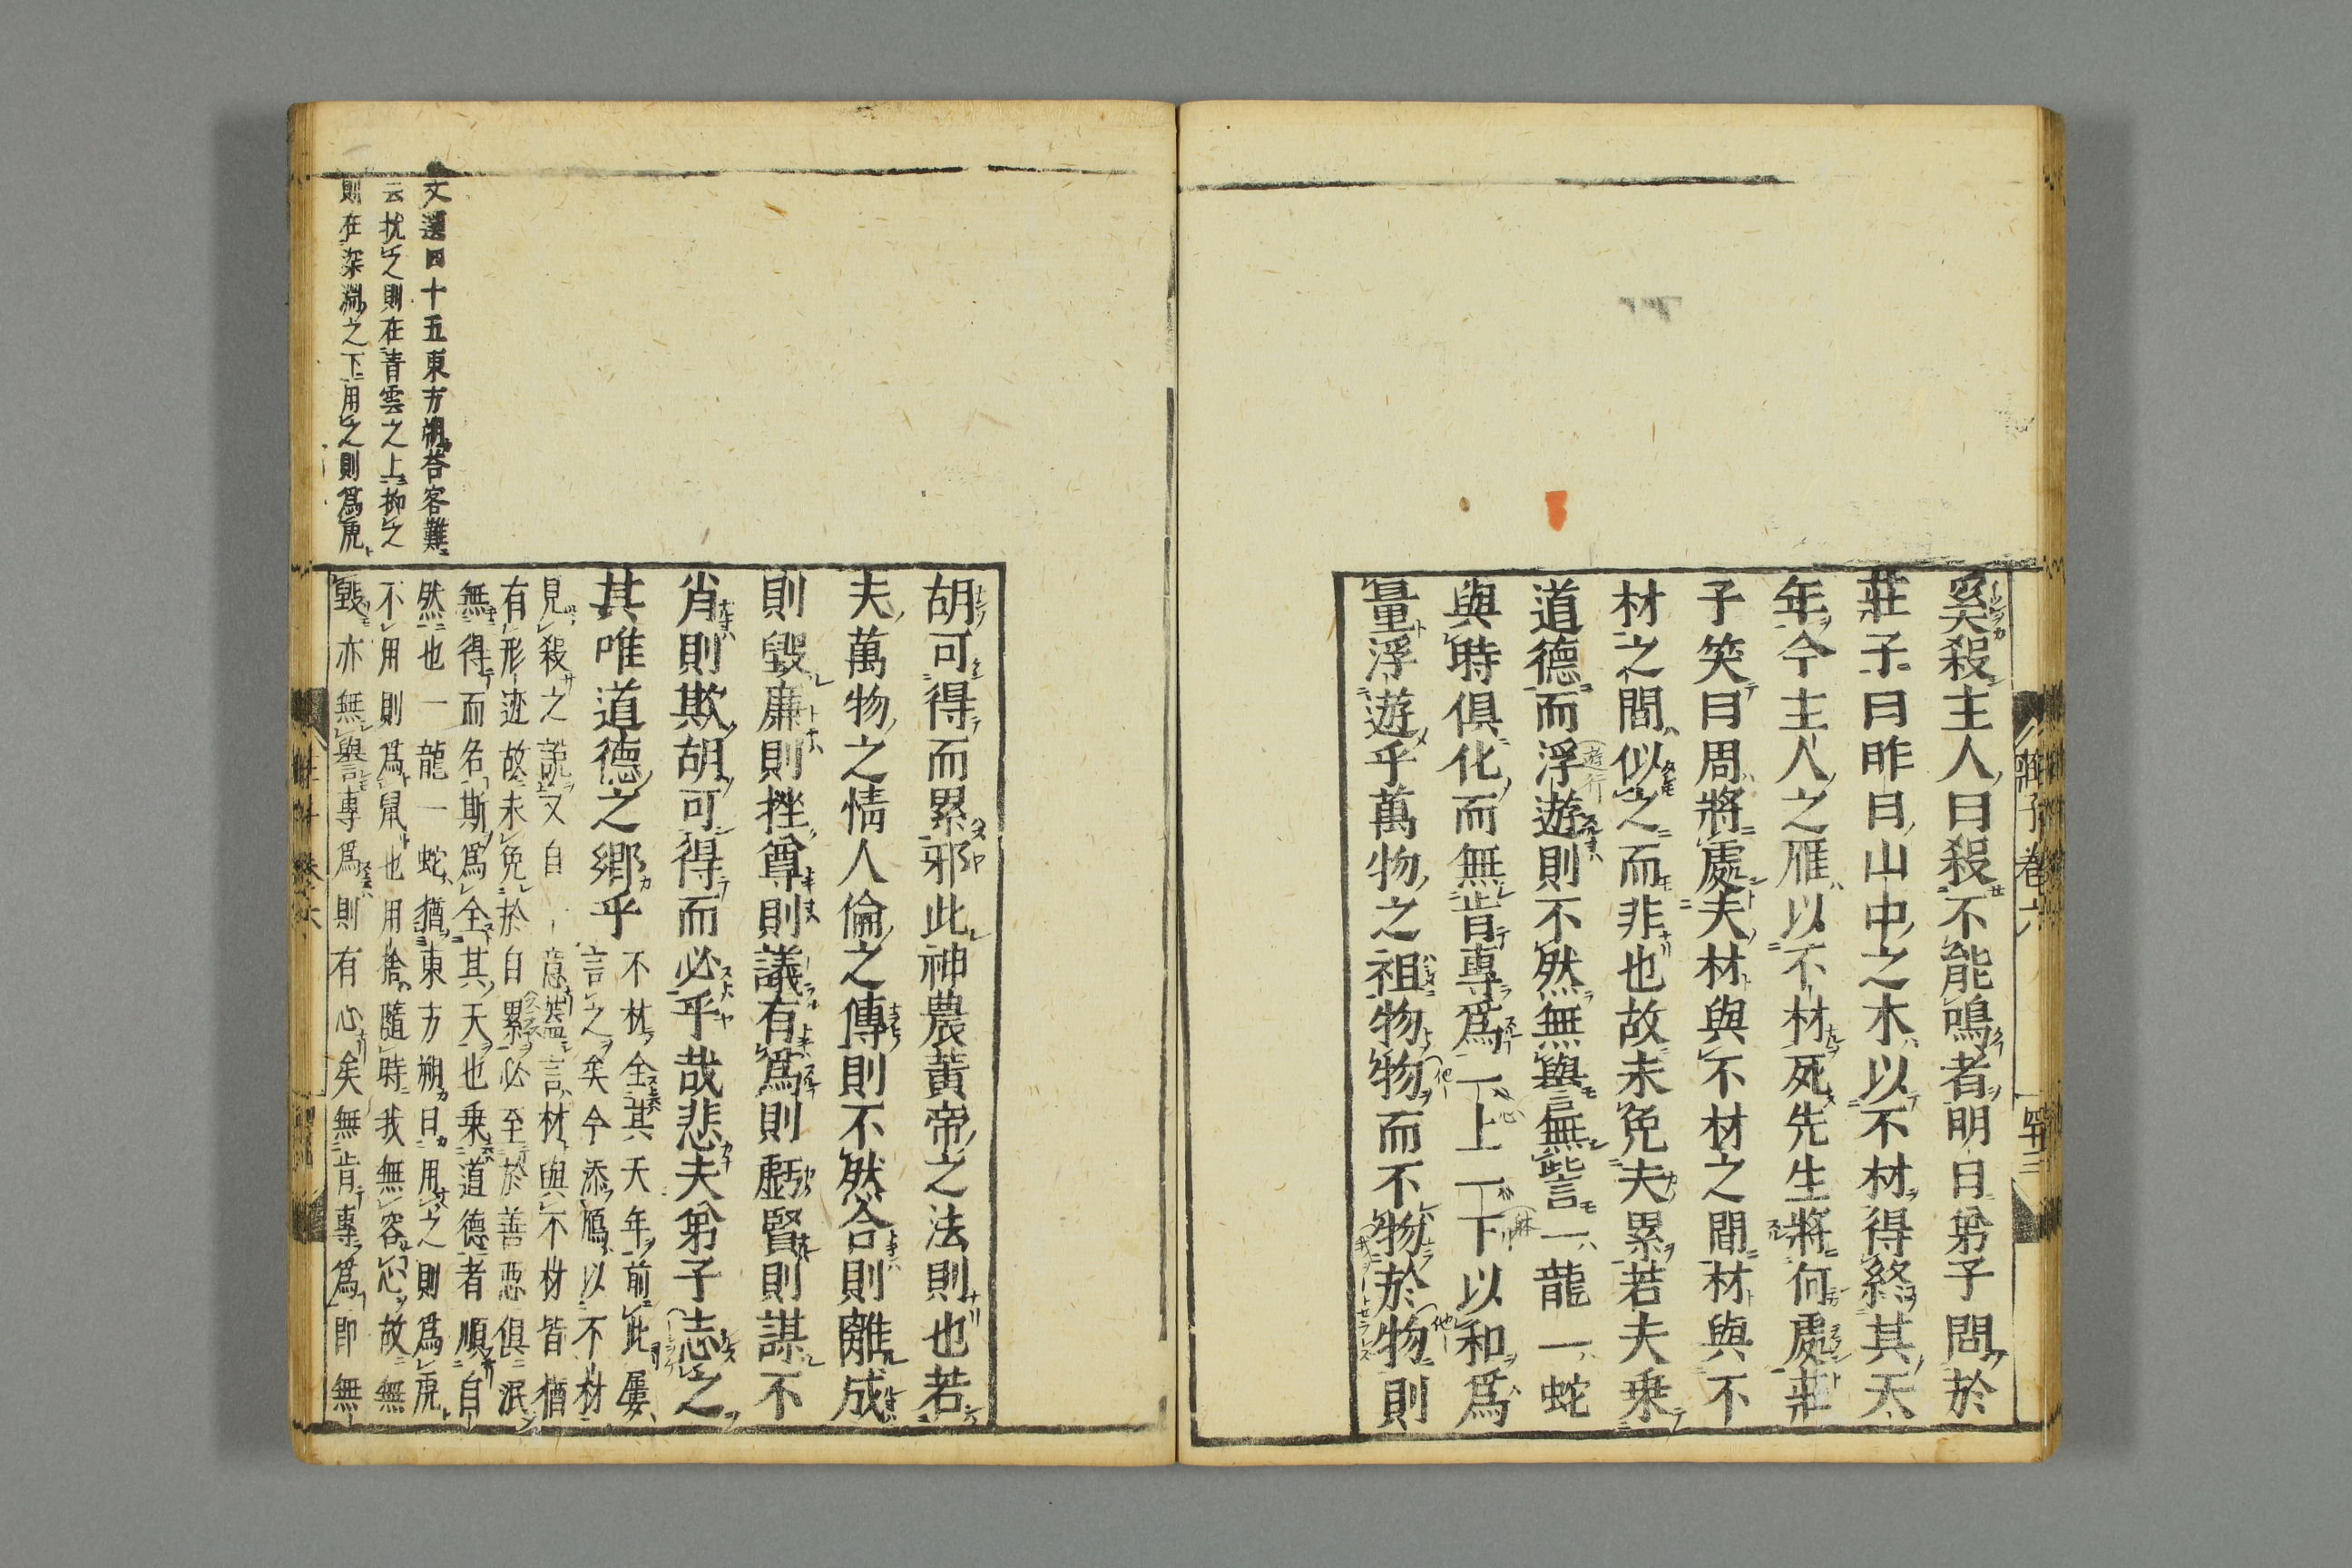 奚殺主人曰殺不能鳴者明日弟子問於
莊子曰昨日山中之木以不材得終其天
年今主人之雁以不材死先生將何處莊
子笑曰周將處夫材與不材之間材與不
材之間似之而非也故未免夫累若夫乗
道德而浮遊則不然無譽無訾一龍一蛇
與時俱化而無肯專爲一上一下以和爲
量浮遊乎萬物之祖物物而不物於物則
莊子巻六
胡可得而累邪此神農黃帝之法則也若
夫萬物之情人倫之傳則不然合則離成
則毀廉則挫尊則議有爲則虧賢則謀不
肖則欺胡可得而必乎哉悲夫弟子志之
其唯道德之鄉乎
不材全其天年前此屢
言之矣今添鴈以不材
見殺之說又自一意蓋言材與不材皆猶
有形迹故未免於自累必至於善惡俱泯
無得而名斯爲全其天也乗道德者順自
然也一龍一蛇猶東方朔曰用之則爲虎
不用則爲鼠也用捨隨時我無容心故無
毀亦無譽專爲則有心矣無肯專爲即無
文選四十五東方朔荅客難
云抗之則在青雲之上抑之
則在深淵之下用之則爲虎